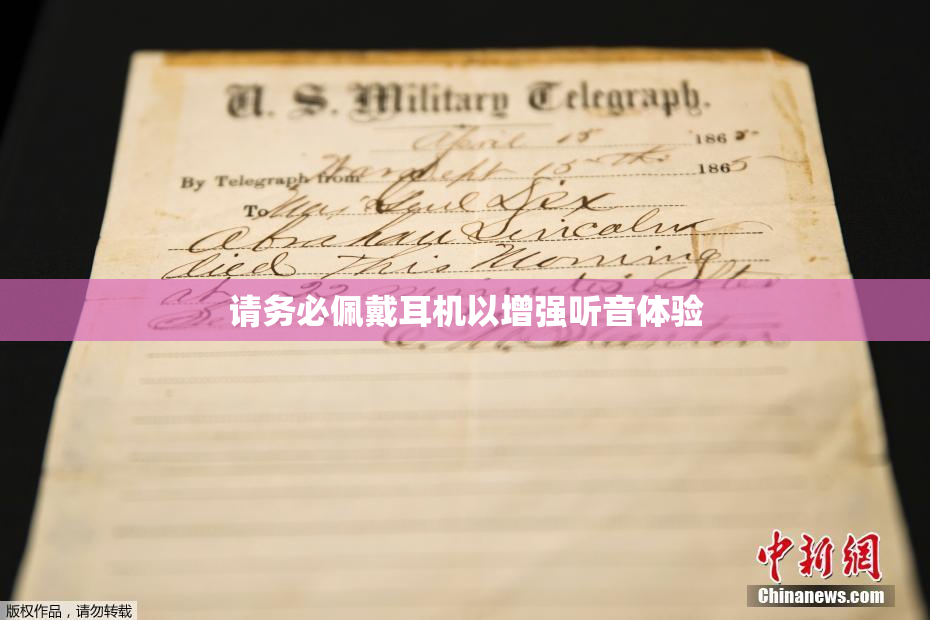 U. S. Military Telegraph.
April 15 1865
By Telegraph from War Dept 15th 1865
To Maj Genl Dix
Abraham Lincoln
died This Morning
at 22 minutes after
请务必佩戴耳机以增强听音体验
Stanton
中新网
Chinanews.com
版权作品，请勿转载